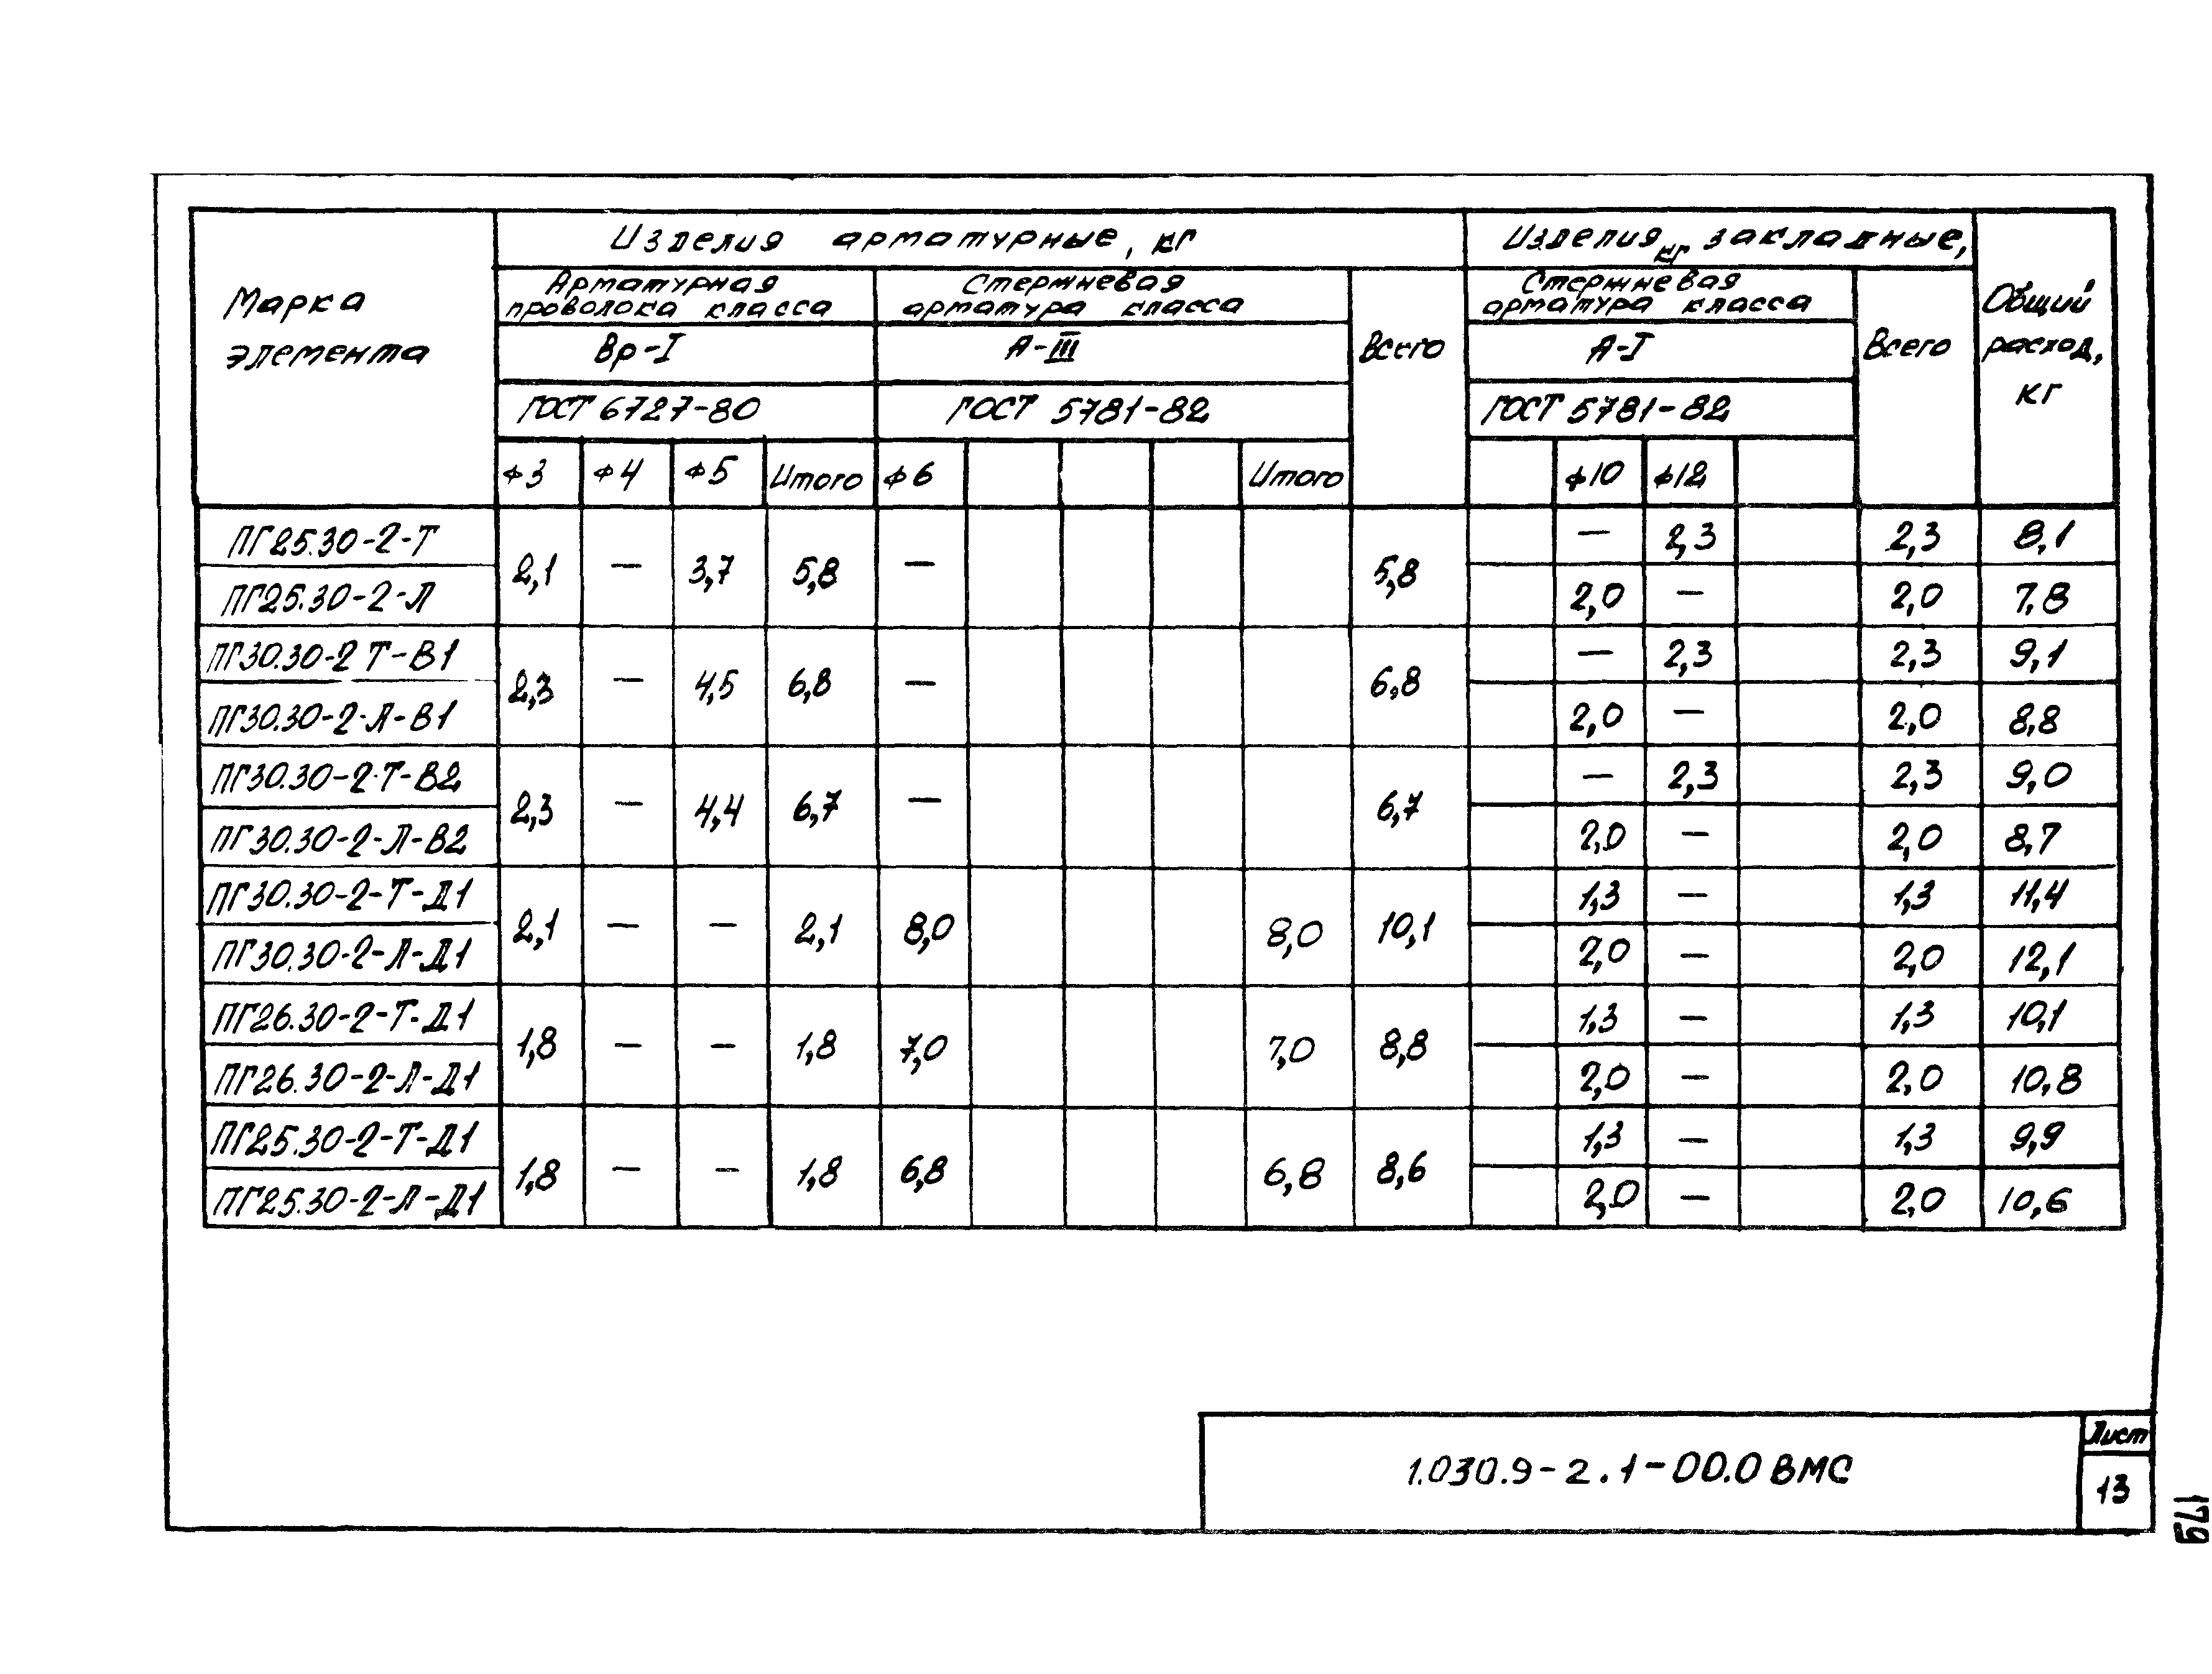 Марка элемента
Изделия арматурные, кг
Изделия закладные, кг
Общий расход, кг
Арматурная проволока класса
Стержневая арматура класса
Всего
Стержневая арматура класса
Всего
Вр-I
А-III
А-I
ГОСТ 6727-80
ГОСТ 5781-82
ГОСТ 5781-82
ф3 ф4 ф5 Итого ф6 Итого ф10 ф12
ПГ25.30-2-Т 2,1 — 3,7 5,8 — 5,8 — 2,3 2,3 8,1
ПГ25.30-2-Л 2,0 — 2,0 7,8
ПГ30.30-2 Т-В1 2,3 — 4,5 6,8 — 6,8 — 2,3 2,3 9,1
ПГ30.30-2-Л-В1 2,0 — 2,0 8,8
ПГ30.30-2-Т-В2 2,3 — 4,4 6,7 — 6,7 — 2,3 2,3 9,0
ПГ30.30-2-Л-В2 2,0 — 2,0 8,7
ПГ30.30-2-Т-Д1 2,1 — — 2,1 8,0 8,0 10,1 1,3 — 1,3 11,4
ПГ30.30-2-Л-Д1 2,0 — 2,0 12,1
ПГ26.30-2-Т-Д1 1,8 — — 1,8 7,0 7,0 8,8 1,3 — 1,3 10,1
ПГ26.30-2-Л-Д1 2,0 — 2,0 10,8
ПГ25.30-2-Т-Д1 1,8 — — 1,8 6,8 6,8 8,6 1,3 — 1,3 9,9
ПГ25.30-2-Л-Д1 2,0 — 2,0 10,6
1.030.9-2.1-00.0 ВМС
Лист
13
179